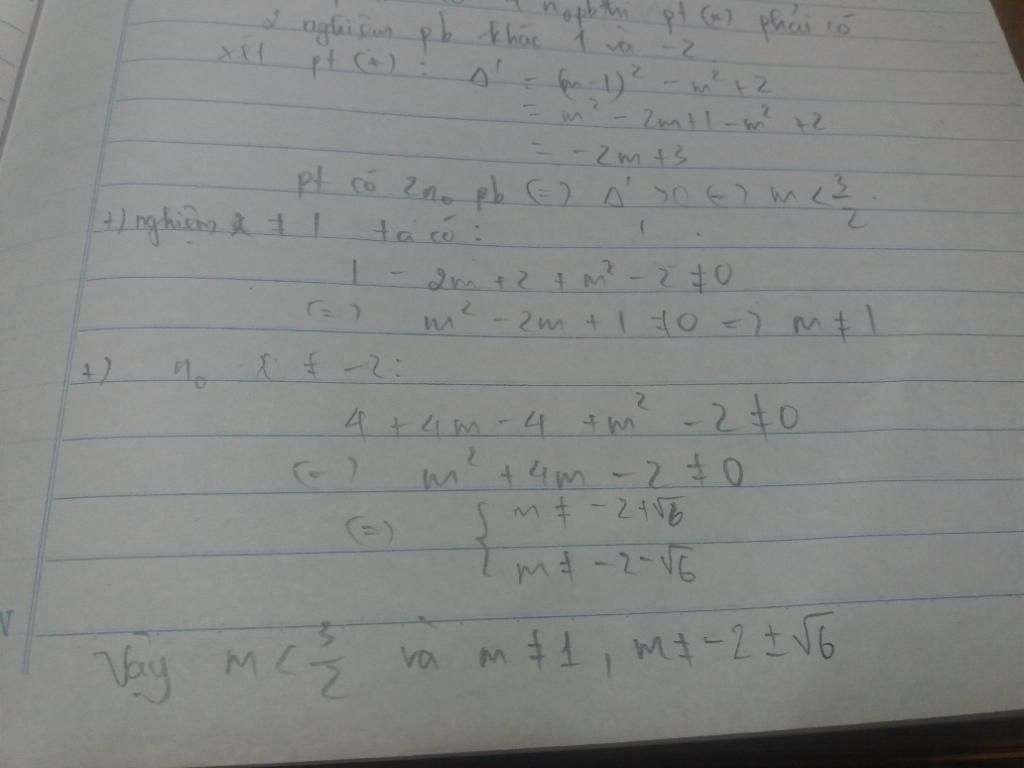 n₀ pb thì pt (*) phải có
2 nghiệm pb khác 1 và -2
xét pt (*) : Δ' = (m-1)² - m² + 2
= m² - 2m+1 - m² + 2
= -2m+3
pt có 2n₀ pb (=) Δ' >0 (=) m < 3/2.
+) nghiệm x ≠ 1 ta có:
1 - 2m + 2 + m² - 2 ≠ 0
(=) m² - 2m + 1 ≠ 0 => m ≠ 1
+) n₀ x ≠ -2:
4 + 4m - 4 + m² - 2 ≠ 0
(=) m² + 4m - 2 ≠ 0
(=) { m ≠ -2+√6
m ≠ -2-√6
Vậy m < 3/2 và m ≠ 1, m ≠ -2 ± √6